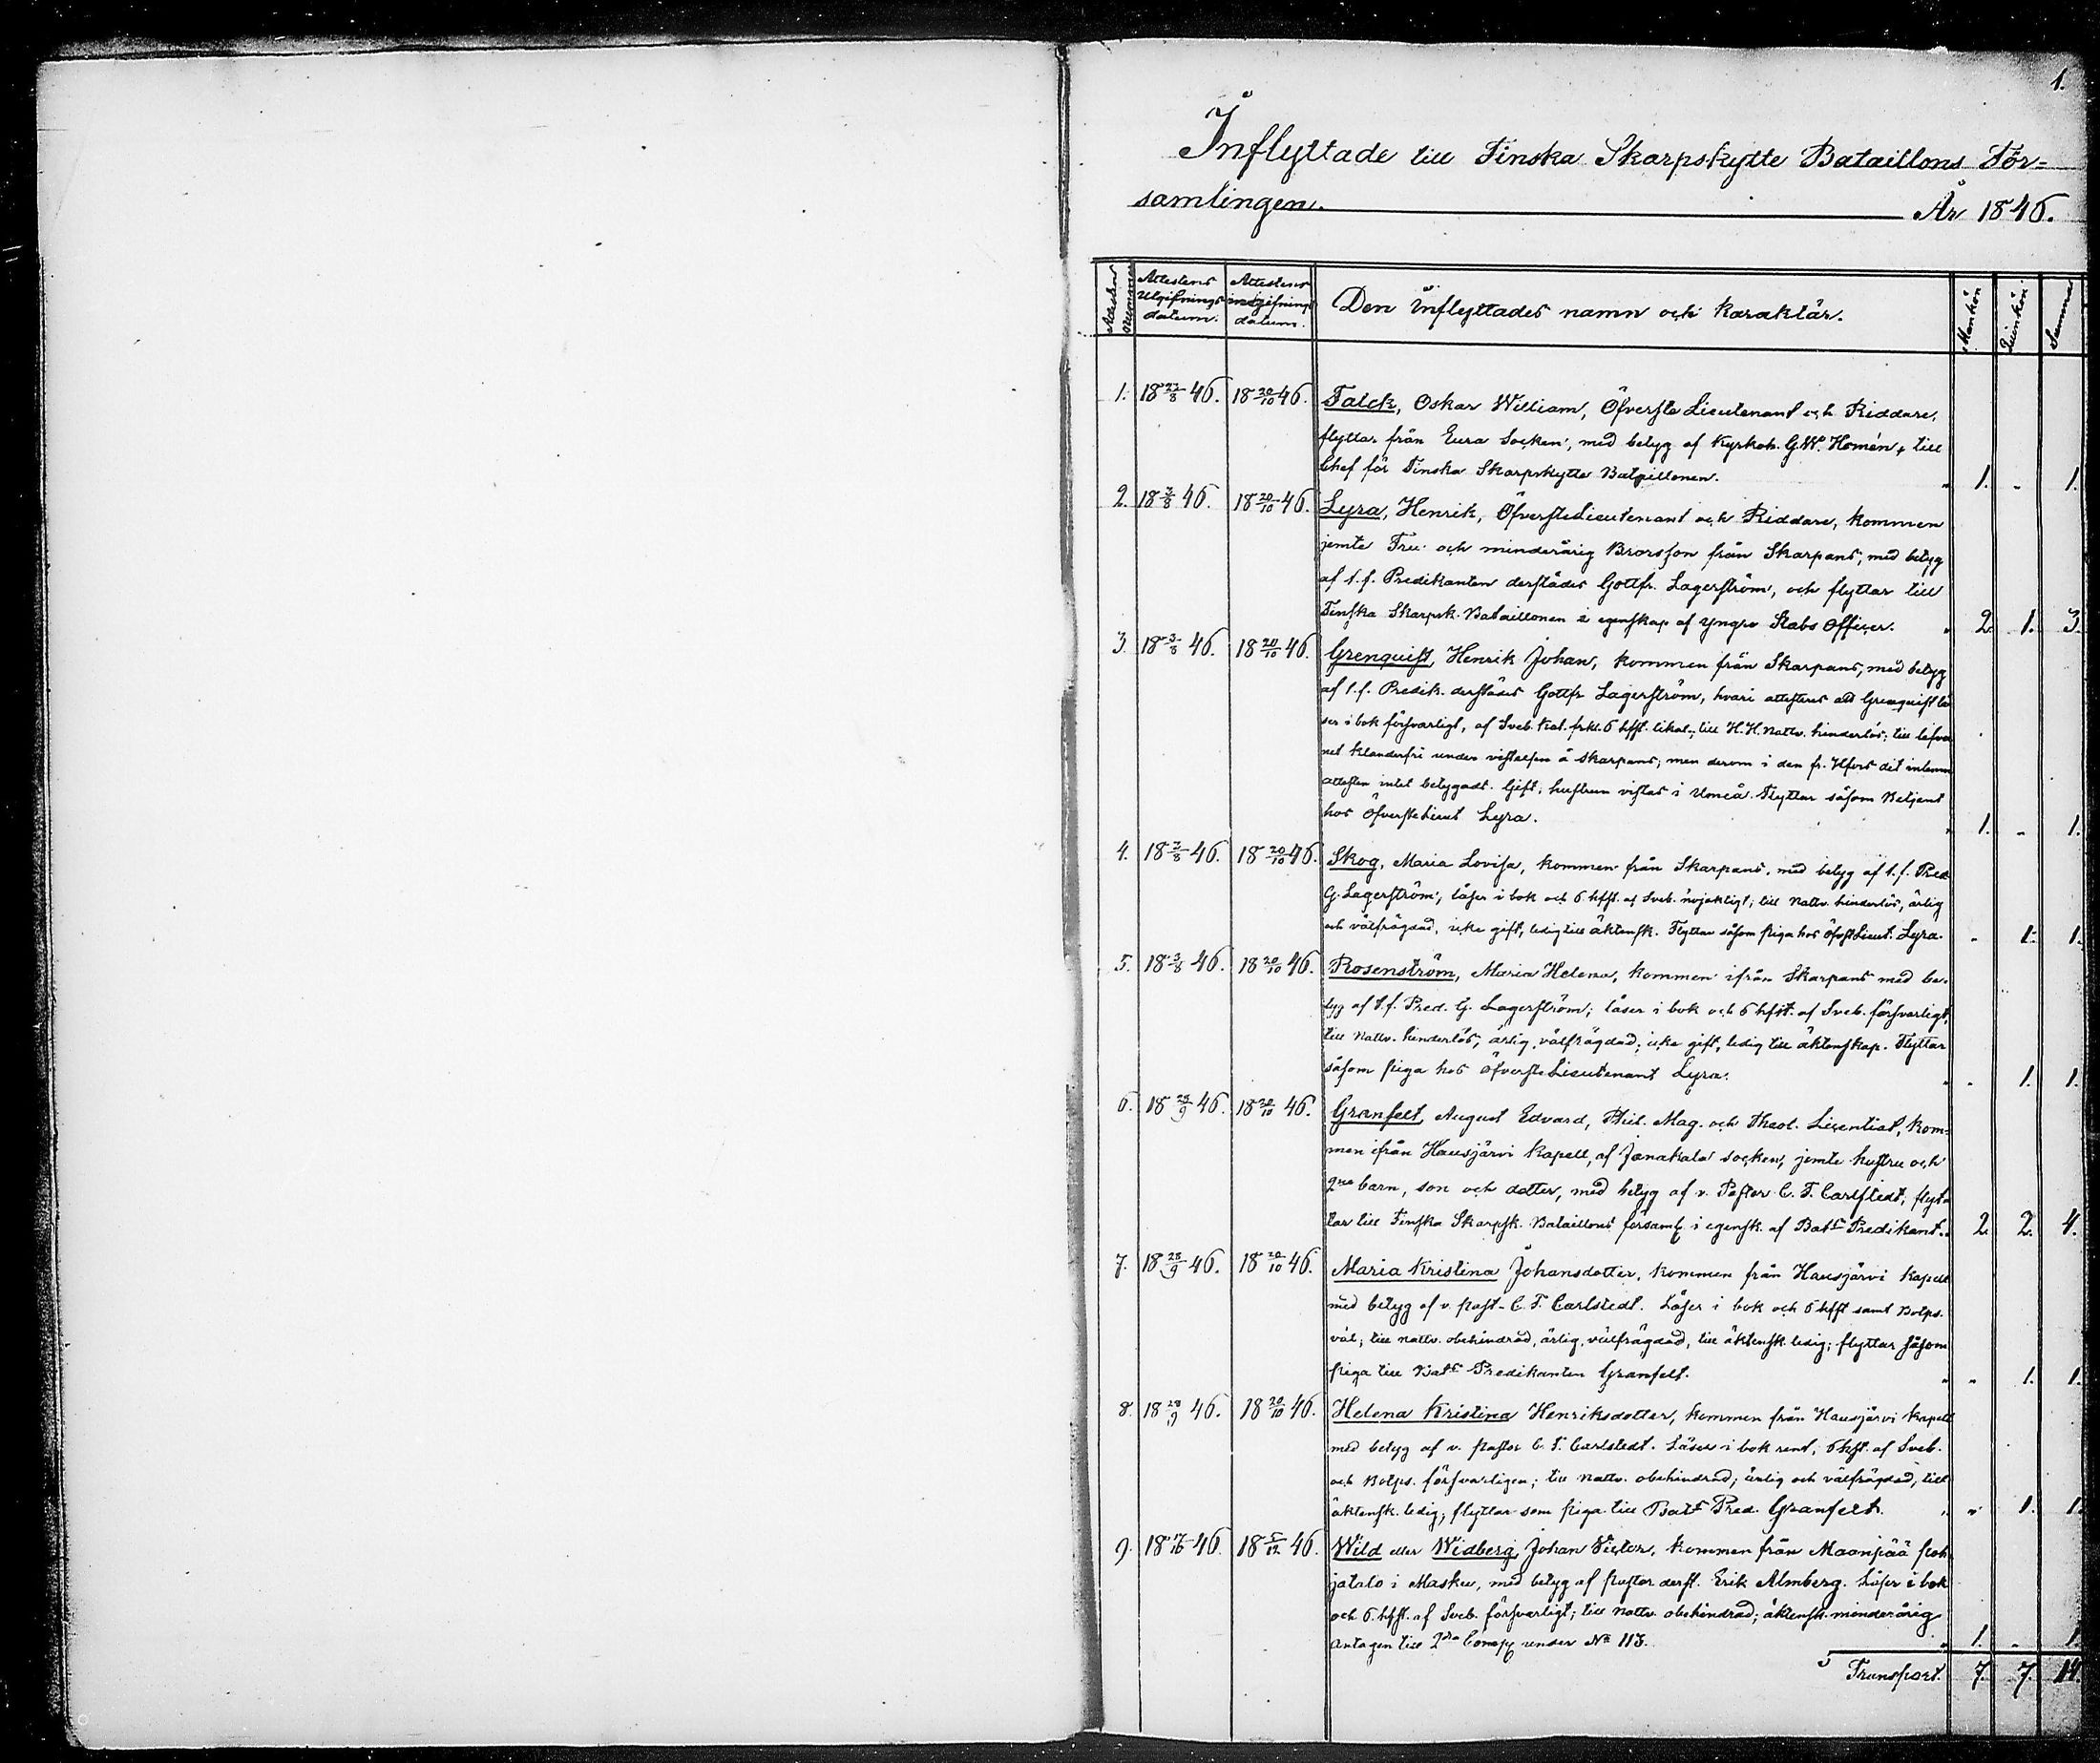 1.
Inflyttade till Finska Skarpskytte Bataillons För-
samlingen. År 1846.
Attestens nummer
Attestens Utgifnings datum.
Attestens ingifnings datum.
Den inflyttades namn och karaktär.
Mankön
Qvinkön
Summa
1. 18 27/8 46. 18 20/10 46. Falck, Oskar William, Öfverste Lieutenant och Riddare,
flyttar från Eura Socken, med betyg af Kyrkoh. G.W. Homén, till
Chef för Finska Skarpskytte Bataillonen. " 1. - 1.
2. 18 3/8 46. 18 20/10 46. Lyra, Henrik, ÖfversteLieutenant och Riddare, kommen
jemte Fru och minderårig Brorsson från Skarpans, med betyg
af t.f. Predikanten derstädes Gottfr. Lagerström, och flyttar till
Finska Skarpsk. Bataillonen i egenskap af yngre Stabs Officer. " 2. 1. 3.
3. 18 3/8 46. 18 20/10 46. Grenquist, Henrik Johan, kommen från Skarpans, med betyg
af t.f. Predik. derstädes Gottfr. Lagerström, hvari attesteras att Grenquist lä-
ser i bok försvarligt, af Sveb. kat. frkl. 6 hfst. likal., till H.H. Nattv. hinderlös; till lefver-
net klanderfri under vistelsen å Skarpans; men derom i den fr. Hfors dit inlemn.
attesten intet betygadt. Gift, hustrun vistas i Umeå. Flyttar såsom Betjent
hos ÖfversteLieut Lyra. " 1. - 1.
4. 18 3/8 46. 18 20/10 46. Skog, Maria Lovisa, kommen från Skarpans, med betyg af t.f. Pred.
G. Lagerström, läser i bok och 6 hfst. af Sveb. nöjaktigt; till Nattv. hinderlös, ärlig
och välfrägdad, icke gift, ledig till äktensk. Flyttar såsom piga hos ÖfvstLieut. Lyra. - 1. 1.
5. 18 3/8 46. 18 20/10 46. Rosenström, Maria Helena, kommen ifrån Skarpans med be-
tyg af t.f. Pred. G. Lagerström; läser i bok och 6 hfst. af Sveb. försvarligt,
till Nattv. hinderlös; ärlig, välfrägdad; icke gift, ledig till äktenskap. Flyttar
såsom piga hos ÖfversteLieutenant Lyra. " - 1. 1.
6. 18 28/9 46. 18 20/10 46. Granfelt, August Edvard, Phil. Mag. och Theol. Licentiat, kom-
men ifrån Hausjärvi kapell, af Janakala socken, jemte hustru och
2ne barn, son och dotter, med betyg af v. Pastor C. F. Carlstedt; flyt-
tar till Finska Skarpsk. Bataillons församl. i egensk. af Bat:s Predikant. 2. 2. 4.
7. 18 28/9 46. 18 20/10 46. Maria Kristina Johansdotter, kommen från Hausjärvi kapell
med betyg af v. past. C. F. Carlstedt. Läser i bok och 6 hfst samt Botps.
väl; till nattv. obehindrad, ärlig, välfrägdad, till äktensk. ledig; flyttar såsom
piga till Bat:s Predikanten Granfelt. " - 1. 1.
8. 18 28/9 46. 18 20/10 46. Helena Kristina Henriksdotter, kommen från Hausjärvi kapell
med betyg af v. pastor C. F. Carlstedt. Läser i bok rent, 6 hfst. af Sveb.
och Botps. försvarligen; till nattv. obehindrad; ärlig och välfrägdad, till
äktensk. ledig; flyttar som piga till Bat:s Pred. Granfelt. " " 1. 1.
9. 18 17/10 46. 18 5/12 46. Wild eller Widberg, Johan Victor, kommen från Maanpää poh-
jatalo i Masku, med betyg af pastor derst. Erik Almberg. Läser i bok
och 6. hfst. af Sveb. försvarligt; till nattv. obehindrad; äktensk. minderårig
Antagen till 2dra Comp. under No 113. " 1. - 1.
Transport. 7. 7. 14.